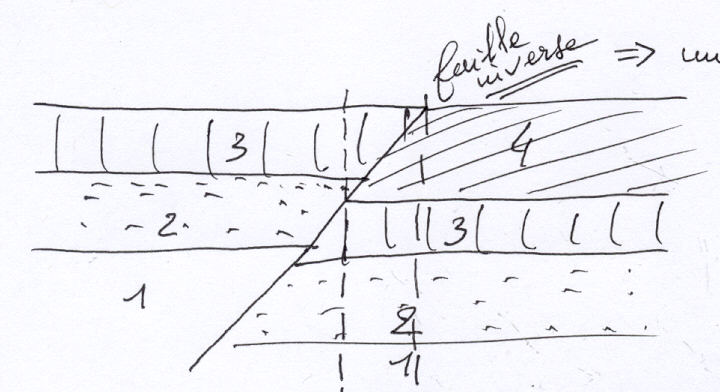 faille
inverse ⇒
3
4
2
3
1
2
1